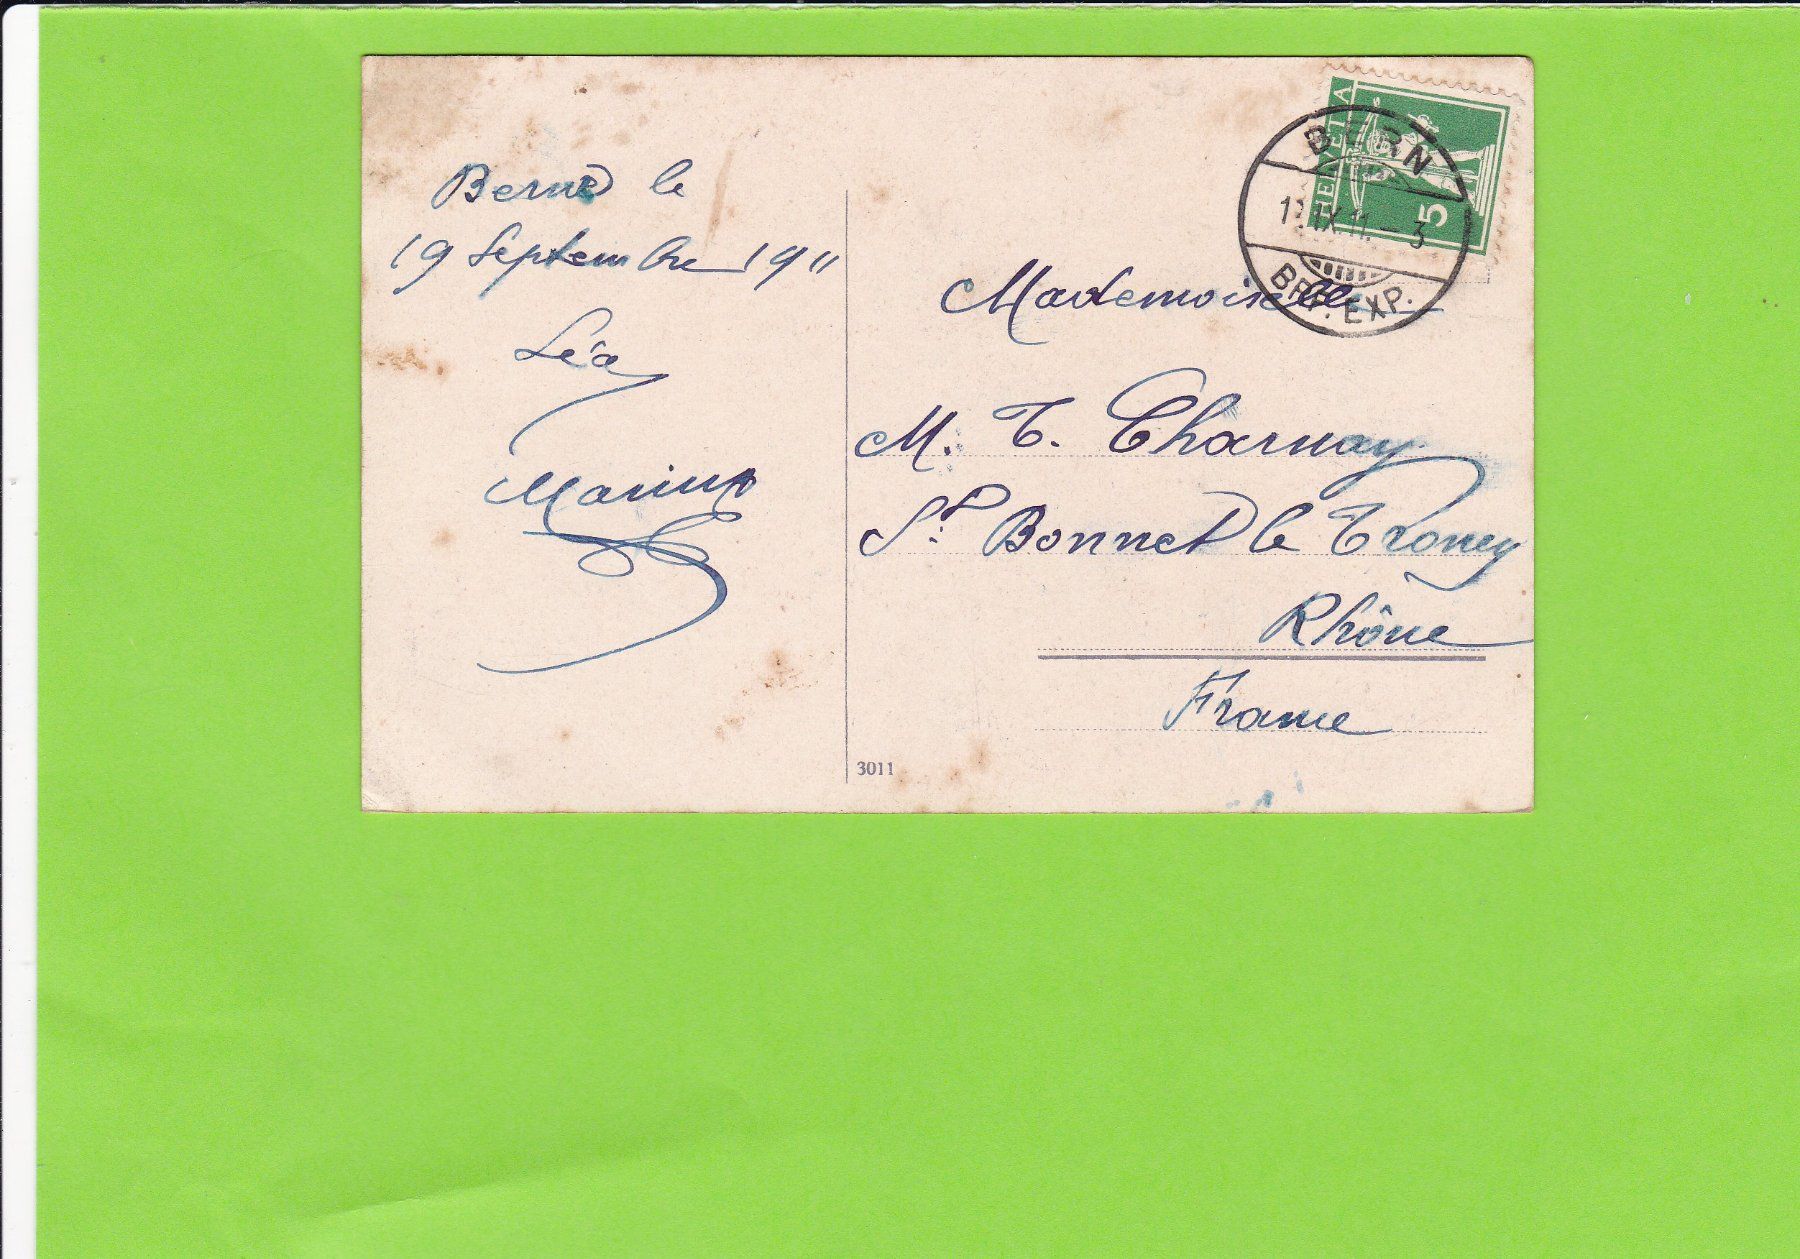 Berne le
19 Septembre 1911
Léa
Marius
HELVETIA
5
BERN
IX.11. – 3
BRF. EXP.
Mademoiselle
M. T. Charnay
St. Bonnet le Troncy
Rhône
France
3011